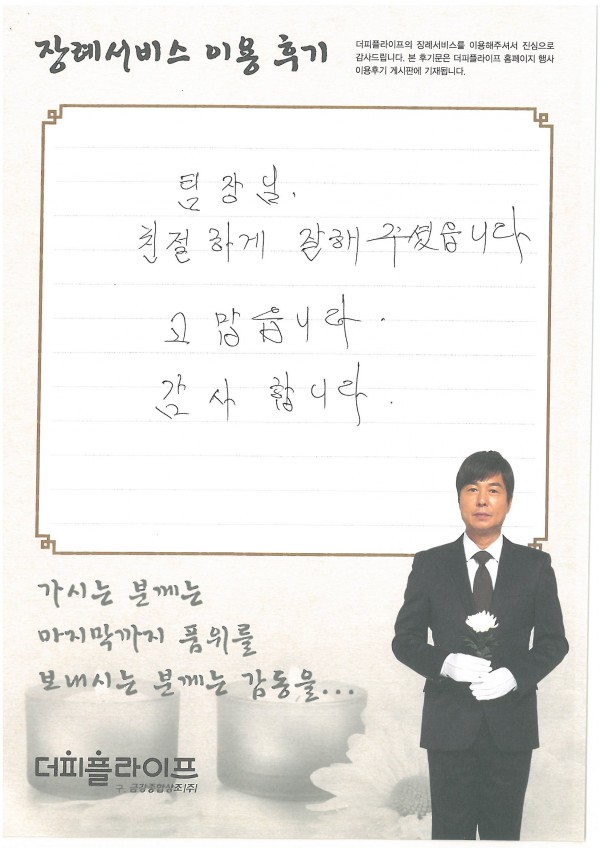 장례서비스 이용 후기
더피플라이프의 장례서비스를 이용해주셔서 진심으로
감사드립니다. 본 후기문은 더피플라이프 홈페이지 행사
이용후기 게시판에 기재됩니다.
팀장님.
친절하게 잘해주셨읍니다
고맙습니다.
감사합니다.
가시는 분께는
마지막까지 품위를
보내시는 분께는 감동을...
더피플라이프
구. 금강종합상조(주)